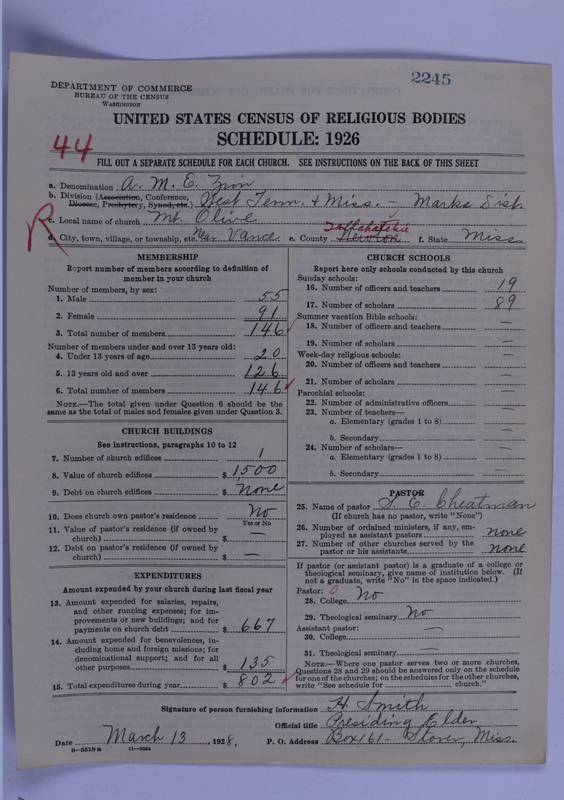 2245
DEPARTMENT OF COMMERCE
BUREAU OF THE CENSUS
WASHINGTON
UNITED STATES CENSUS OF RELIGIOUS BODIES
SCHEDULE: 1926
44
FILL OUT A SEPARATE SCHEDULE FOR EACH CHURCH. SEE INSTRUCTIONS ON THE BACK OF THIS SHEET
a. Denomination A. M. E. Zion
b. Division (Association, Conference, Diocese, Presbytery, Synod, etc.) West Tenn. + Miss. - Marks Dist.
R
c. Local name of church Mt. Olive
d. City, town, village, or township, etc. Near Vance e. County Newton Tallahatchie f. State Miss.
MEMBERSHIP
Report number of members according to definition of
member in your church
Number of members, by sex:
1. Male 55
2. Female 91
3. Total number of members 146
Number of members under and over 13 years old:
4. Under 13 years of age 20
5. 13 years old and over 126
6. Total number of members 146
NOTE.—The total given under Question 6 should be the
same as the total of males and females given under Question 3.
CHURCH BUILDINGS
See instructions, paragraphs 10 to 12
7. Number of church edifices 1
8. Value of church edifices $ 1500
9. Debt on church edifices $ none
10. Does church own pastor's residence No
Yes or No
11. Value of pastor's residence (if owned by
church) $ —
12. Debt on pastor's residence (if owned by
church) $ —
EXPENDITURES
Amount expended by your church during last fiscal year
13. Amount expended for salaries, repairs,
and other running expenses; for im-
provements or new buildings; and for
payments on church debt $ 667
14. Amount expended for benevolences, in-
cluding home and foreign missions; for
denominational support; and for all
other purposes $ 135
15. Total expenditures during year $ 802
CHURCH SCHOOLS
Report here only schools conducted by this church
Sunday schools:
16. Number of officers and teachers 19
17. Number of scholars 89
Summer vacation Bible schools:
18. Number of officers and teachers —
19. Number of scholars —
Week-day religious schools:
20. Number of officers and teachers —
21. Number of scholars —
Parochial schools:
22. Number of administrative officers —
23. Number of teachers—
a. Elementary (grades 1 to 8) —
b. Secondary —
24. Number of scholars—
a. Elementary (grades 1 to 8) —
b. Secondary —
PASTOR
25. Name of pastor S. E. Cheatman
(If church has no pastor, write "None")
26. Number of ordained ministers, if any, em-
ployed as assistant pastors none
27. Number of other churches served by the
pastor or his assistants none
If pastor (or assistant pastor) is a graduate of a college or
theological seminary, give name of institution below. (If
not a graduate, write "No" in the space indicated.)
Pastor: 0
28. College No
29. Theological seminary No
Assistant pastor:
30. College —
31. Theological seminary —
NOTE.—Where one pastor serves two or more churches,
Questions 28 and 29 should be answered only on the schedule
for one of the churches; on the schedules for the other churches,
write "See schedule for church."
Signature of person furnishing information H. Smith
Official title Presiding Elder
Date March 13, 1928. P. O. Address Box 161 - Stover, Miss.
8-5518a 11-9084